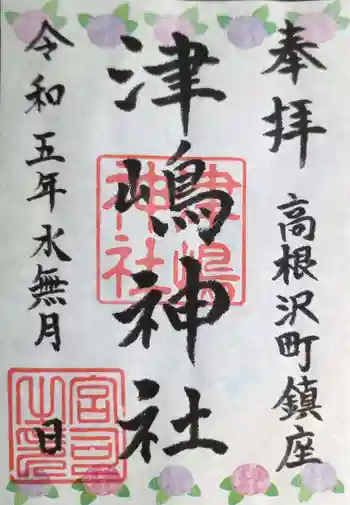 奉拝 高根沢町鎮座
津嶋神社
令和五年水無月 日
津嶋神社
宮司之印